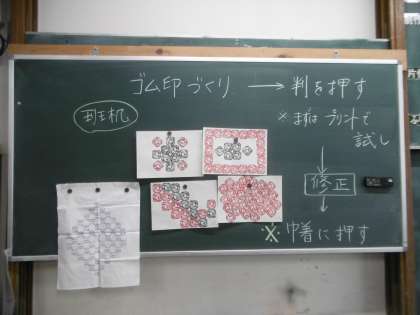 ゴム印づくり → 判を押す
班机
※まずは プリントで
試し
↓
修正
↓
※ 巾着に押す